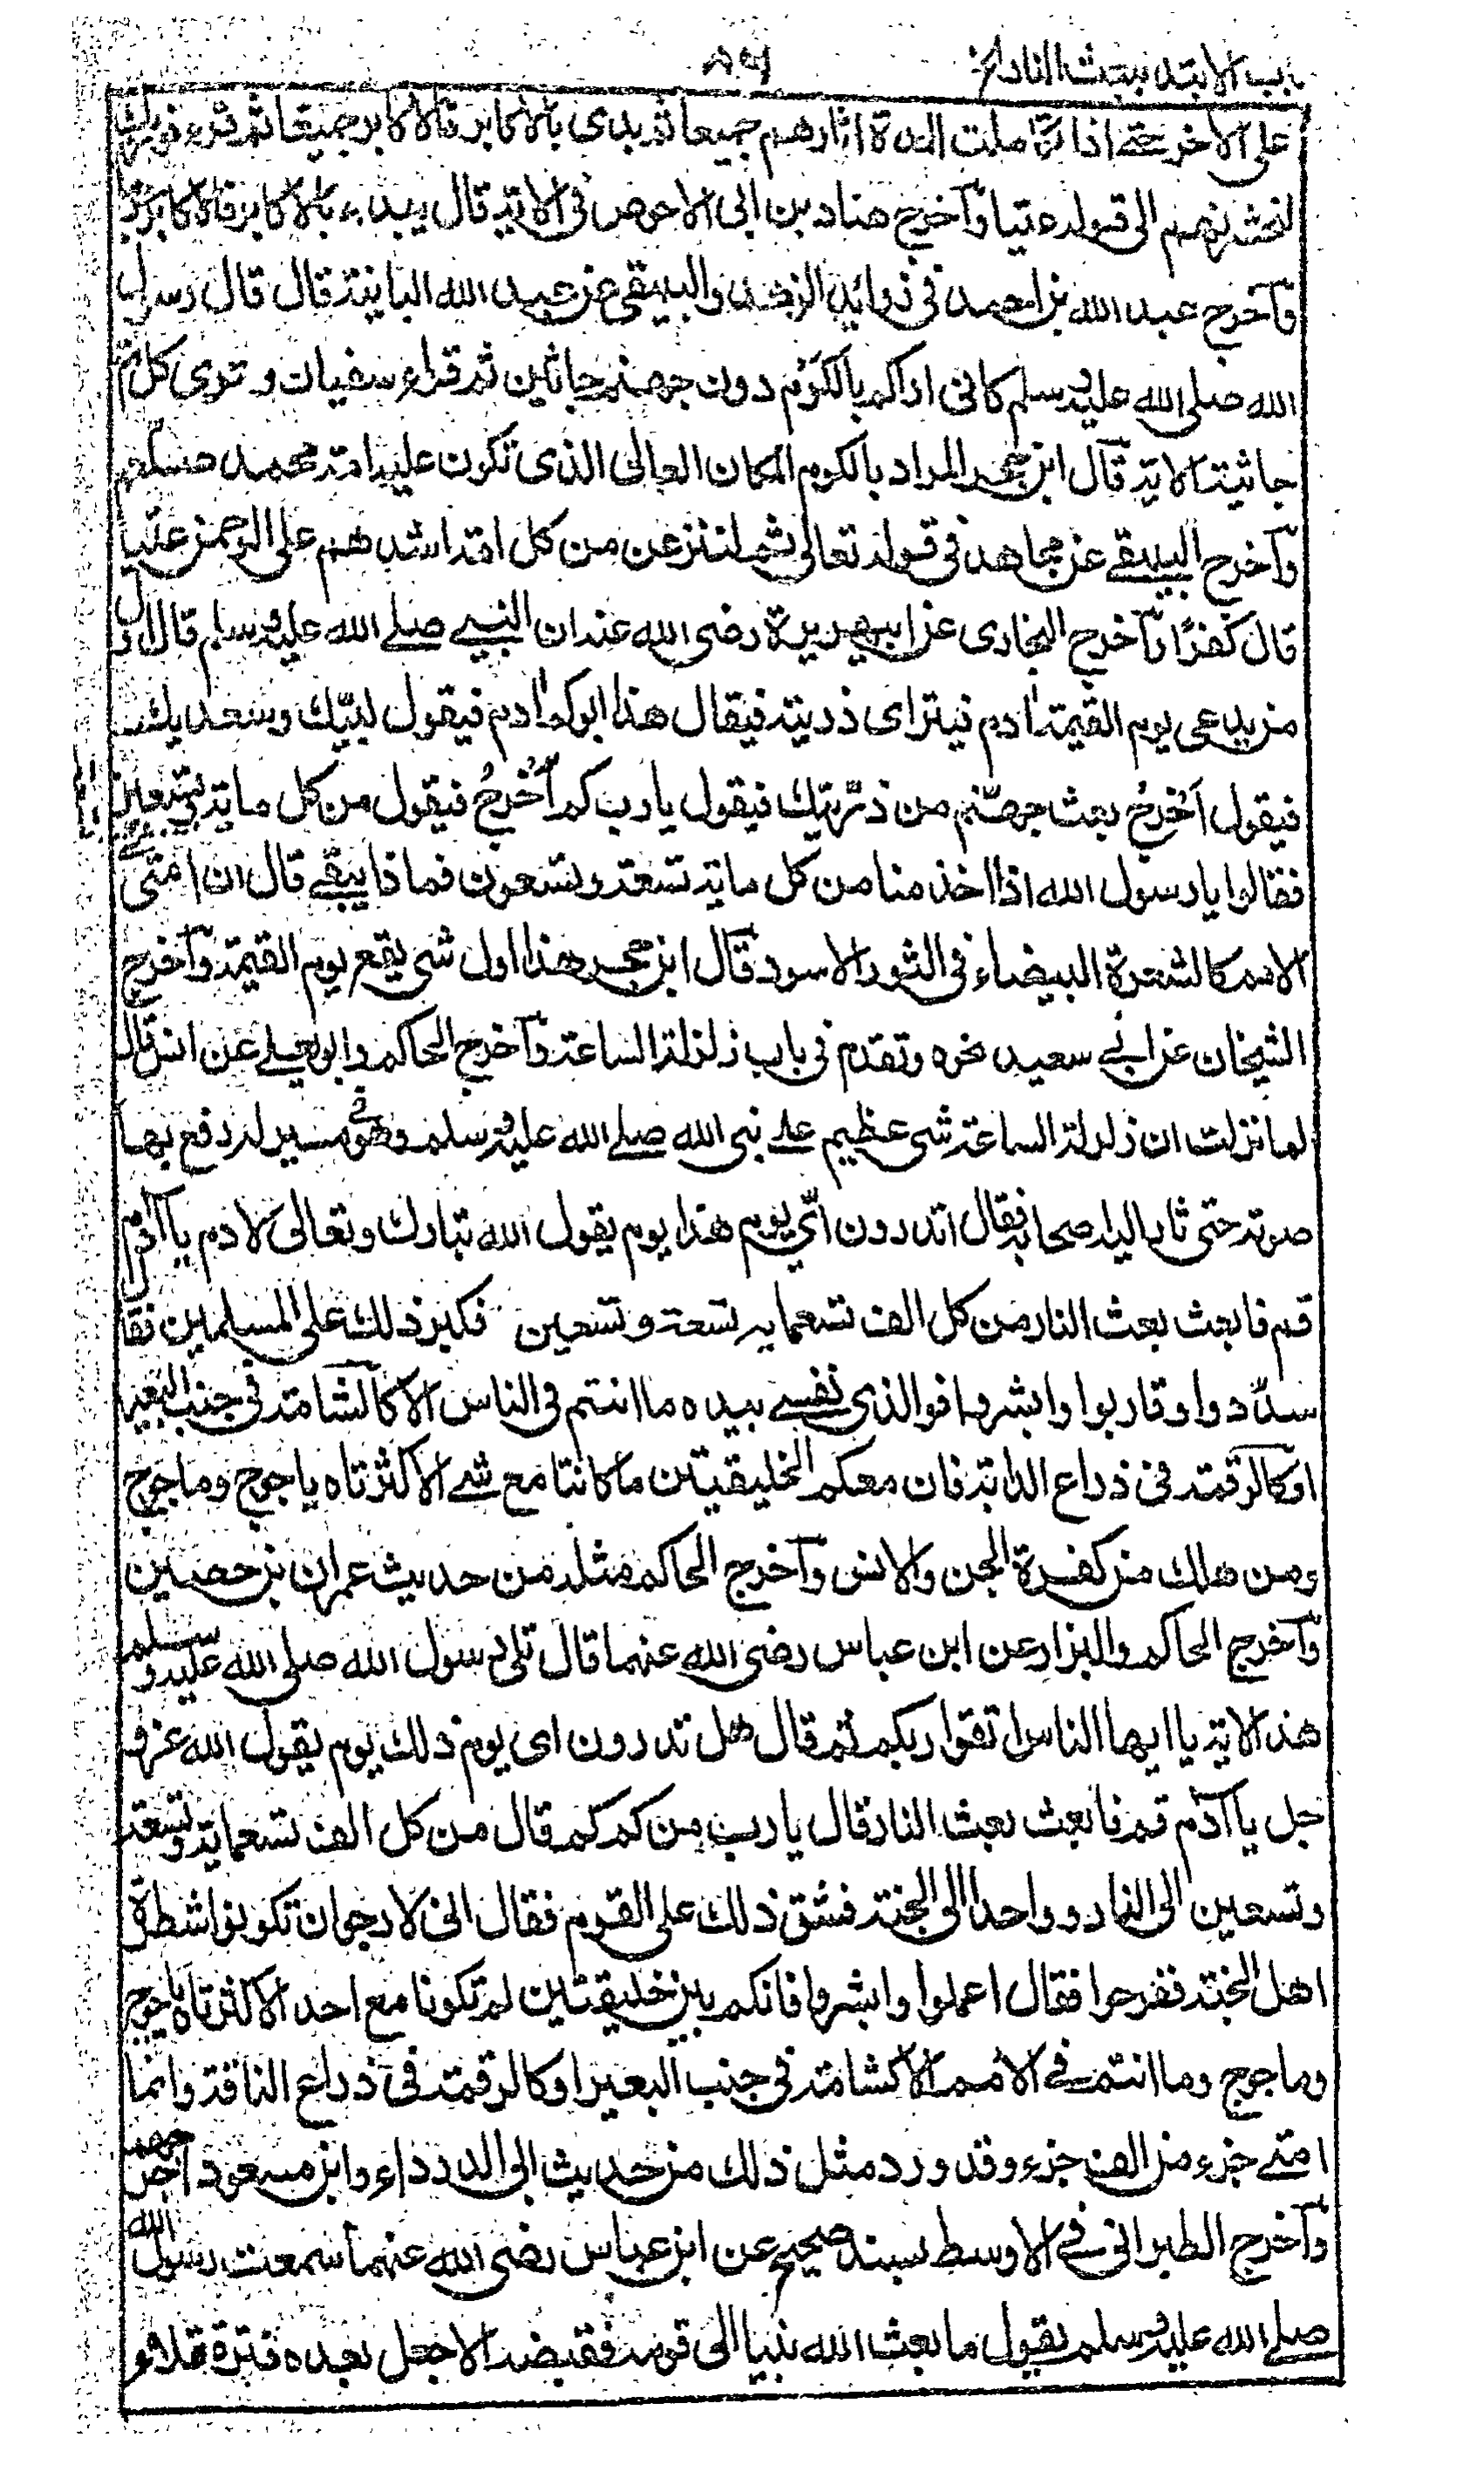 باب الابتداء ببعث النار الخ ٨٦
على الآخر حتے اذا تكاملت العدة اثارهم جميعا ثم يبدى بالاكابر فالاكابر جميعا ثم قرء فوربك
لنحشرنهم الى قوله عتيا وآخرج هناد بن ابى الاحوص فى الاية قال يبدء بالاكابر فالاكابر
وآخرج عبد الله بن احمد فى زوائد الزهد والبيهقى عن عبيد الله البانية قال قال رسول
الله صلى الله عليه وسلم كانى اراكم بالكوم دون جهنم جاثين ثم قراء سفيان و ترى كل امة
جاثية الاية قال ابن حجر المراد بالكوم المكان العالى الذى تكون عليه امة محمد صلعم
وآخرج البيهقے عن مجاهد فى قوله تعالى ثم لننزعن من كل امة اشدهم على الرحمن عتيا
قال كفرًا وآخرج البخارى عن ابيهريرة رضى الله عنه ان النبے صلے الله عليه وسلم قال اول
من يدعى يوم القيمة ادم فيتراى ذريته فيقال هذا ابوكم ادم فيقول لبيك وسعديك
فيقول اَخرِج بعث جهنم من ذريتك فيقول يا رب كم اُخرِجُ فيقول من كل ماية تسعة وتسعين
فقالوا يا رسول الله اذا اخذ منا من كل ماية تسعة وتسعون فما ذا يبقے قال ان امتى فے
الامم كالشعرة البيضاء فى الثور الاسود قال ابن حجر هذا اول شى يقع يوم القيمة وآخرج
الشيخان عن ابے سعيد نحوه وتقدم فى باب زلزلة الساعة وآخرج الحاكم وابو يعلے عن انس قال
لما نزلت ان زلزلة الساعة شى عظيم علے نبى الله صلے الله عليه وسلم وهو فے مسير له رفع بها
صوته حتى ثاب اليه اصحابه فقال اتدرون اىّ يوم هذا يوم يقول الله تبارك وتعالى لادم يا آدم
قم فابعث بعث النار من كل الف تسعماية تسعة وتسعين فكبر ذلك على المسلمين فقال
سدّدوا وقاربوا وابشروا فوالذى نفسے بيده ما انتم فى الناس الا كالشامة فى جنب البعير
او كالرقمة فى ذراع الدابة فان معكم الخليقتين ما كانتا مع شے الا كثرتاه ياجوج وماجوج
ومن هلك من كفرة الجن والانس وآخرج الحاكم مثله من حديث عمران بن حصين
وآخرج الحاكم والبزار عن ابن عباس رضى الله عنهما قال تلى رسول الله صلى الله عليه وسلم
هذه الاية يا ايها الناس اتقوا ربكم ثم قال هل تدرون اى يوم ذلك يوم يقول الله عز و
جل يا آدم قم فابعث بعث النار قال يا رب من كم كم قال من كل الف تسعماية وتسعة
وتسعين الى النار وواحدا الى الجنة فشق ذلك على القوم فقال انى لارجو ان تكونوا شطر
اهل الجنة ففرحوا فقال اعملوا وابشروا فانكم بين خليقتين لم تكونا مع احد الا كثرتاه ياجوج
وماجوج وما انتم فے الامم الا كشامة فى جنب البعير او كالرقمة فى ذراع الناقة وانما
امتے جزء من الف جزء وقد ورد مثل ذلك من حديث ابى الدرداء وابن مسعود
وآخرج الطبرانى فے الاوسط بسند صحيح عن ابن عباس رضى الله عنهما سمعت رسول الله
صلے الله عليه وسلم يقول ما بعث الله نبيا الى قومه فقبضه الا جعل بعده فترة